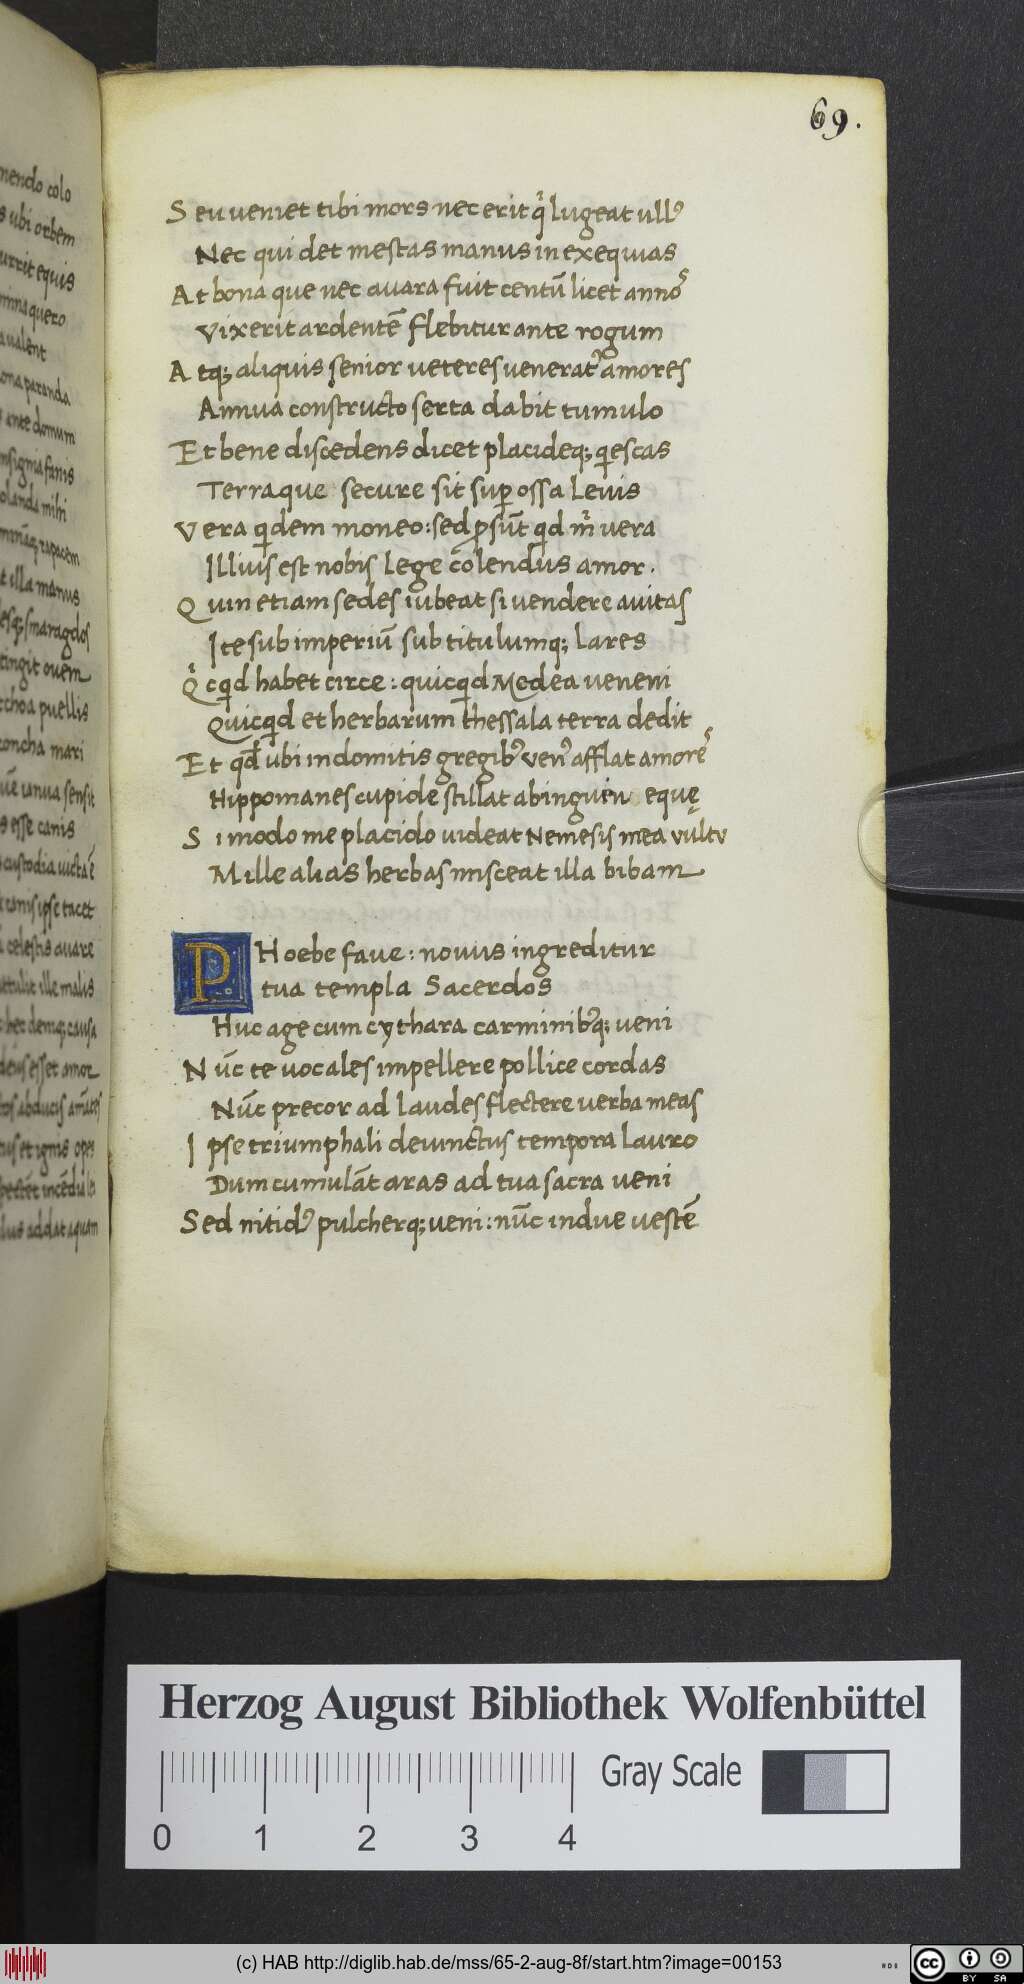 mendo colo
s ubi orbem
urrit equis
mina quero
a ualent
ona paranda
ante domum
nsignia fanis
olanda mihi
minaq; rapacem
t illa manus
esq; smaragdos
tingit ouem
choa puellis
concha mari
uē ianua sensit
s esse canis
custodia uicta ē
canis ipse tacet
celestis auare
attulit ille malis
hec deniq; causa
deus esset amor
et ignis opes
luus addat aquam
69.
Seu ueniet tibi mors nec erit q̍ lugeat ullꝰ
Nec qui det mestas manus in exequias
At bona que nec auara fuit centū licet annoꝝ
Vixerit ardentē flebitur ante rogum
Atq; aliquis senior ueteres ueneratꝰ amores
Annua constructo serta dabit tumulo
Et bene discedens dicet placideq; qͥescas
Terraque secure sit suꝑ ossa leuis
Vera qͥdem moneo: sed ꝓsūt qͥd mͥ uera
Illius est nobis lege cōlendus amor.
Quin etiam sedes iubeat si uendere auitas
Ite sub imperiū sub titulumq; lares
Qͥcqͥd habet circe: quicqͥd Medea ueneni
Quicqͥd et herbarum thessala terra dedit
Et qd̄ ubi indomitis gregibꝰ uenꝰ afflat amorēs
Hippomanes cupide stillat ab inguin equę
Si modo me placido uideat Nemesis mea uultu
Mille alias herbas misceat illa bibam
PHoebe faue: nouus ingreditur
tua templa Sacerdos
Huc age cum cythara carminibꝰq; ueni
Nūc te uocales impellere pollice cordas
Nūc precor ad laudes flectere uerba meas
Ipse triumphali deuinctus tempora lauro
Dum cumulāt aras ad tua sacra ueni
Sed nitidꝰ pulcherq; ueni: nūc indue uestē
Herzog August Bibliothek Wolfenbüttel
Gray Scale
0 1 2 3 4
(c) HAB http://diglib.hab.de/mss/65-2-aug-8f/start.htm?image=00153
cc BY SA